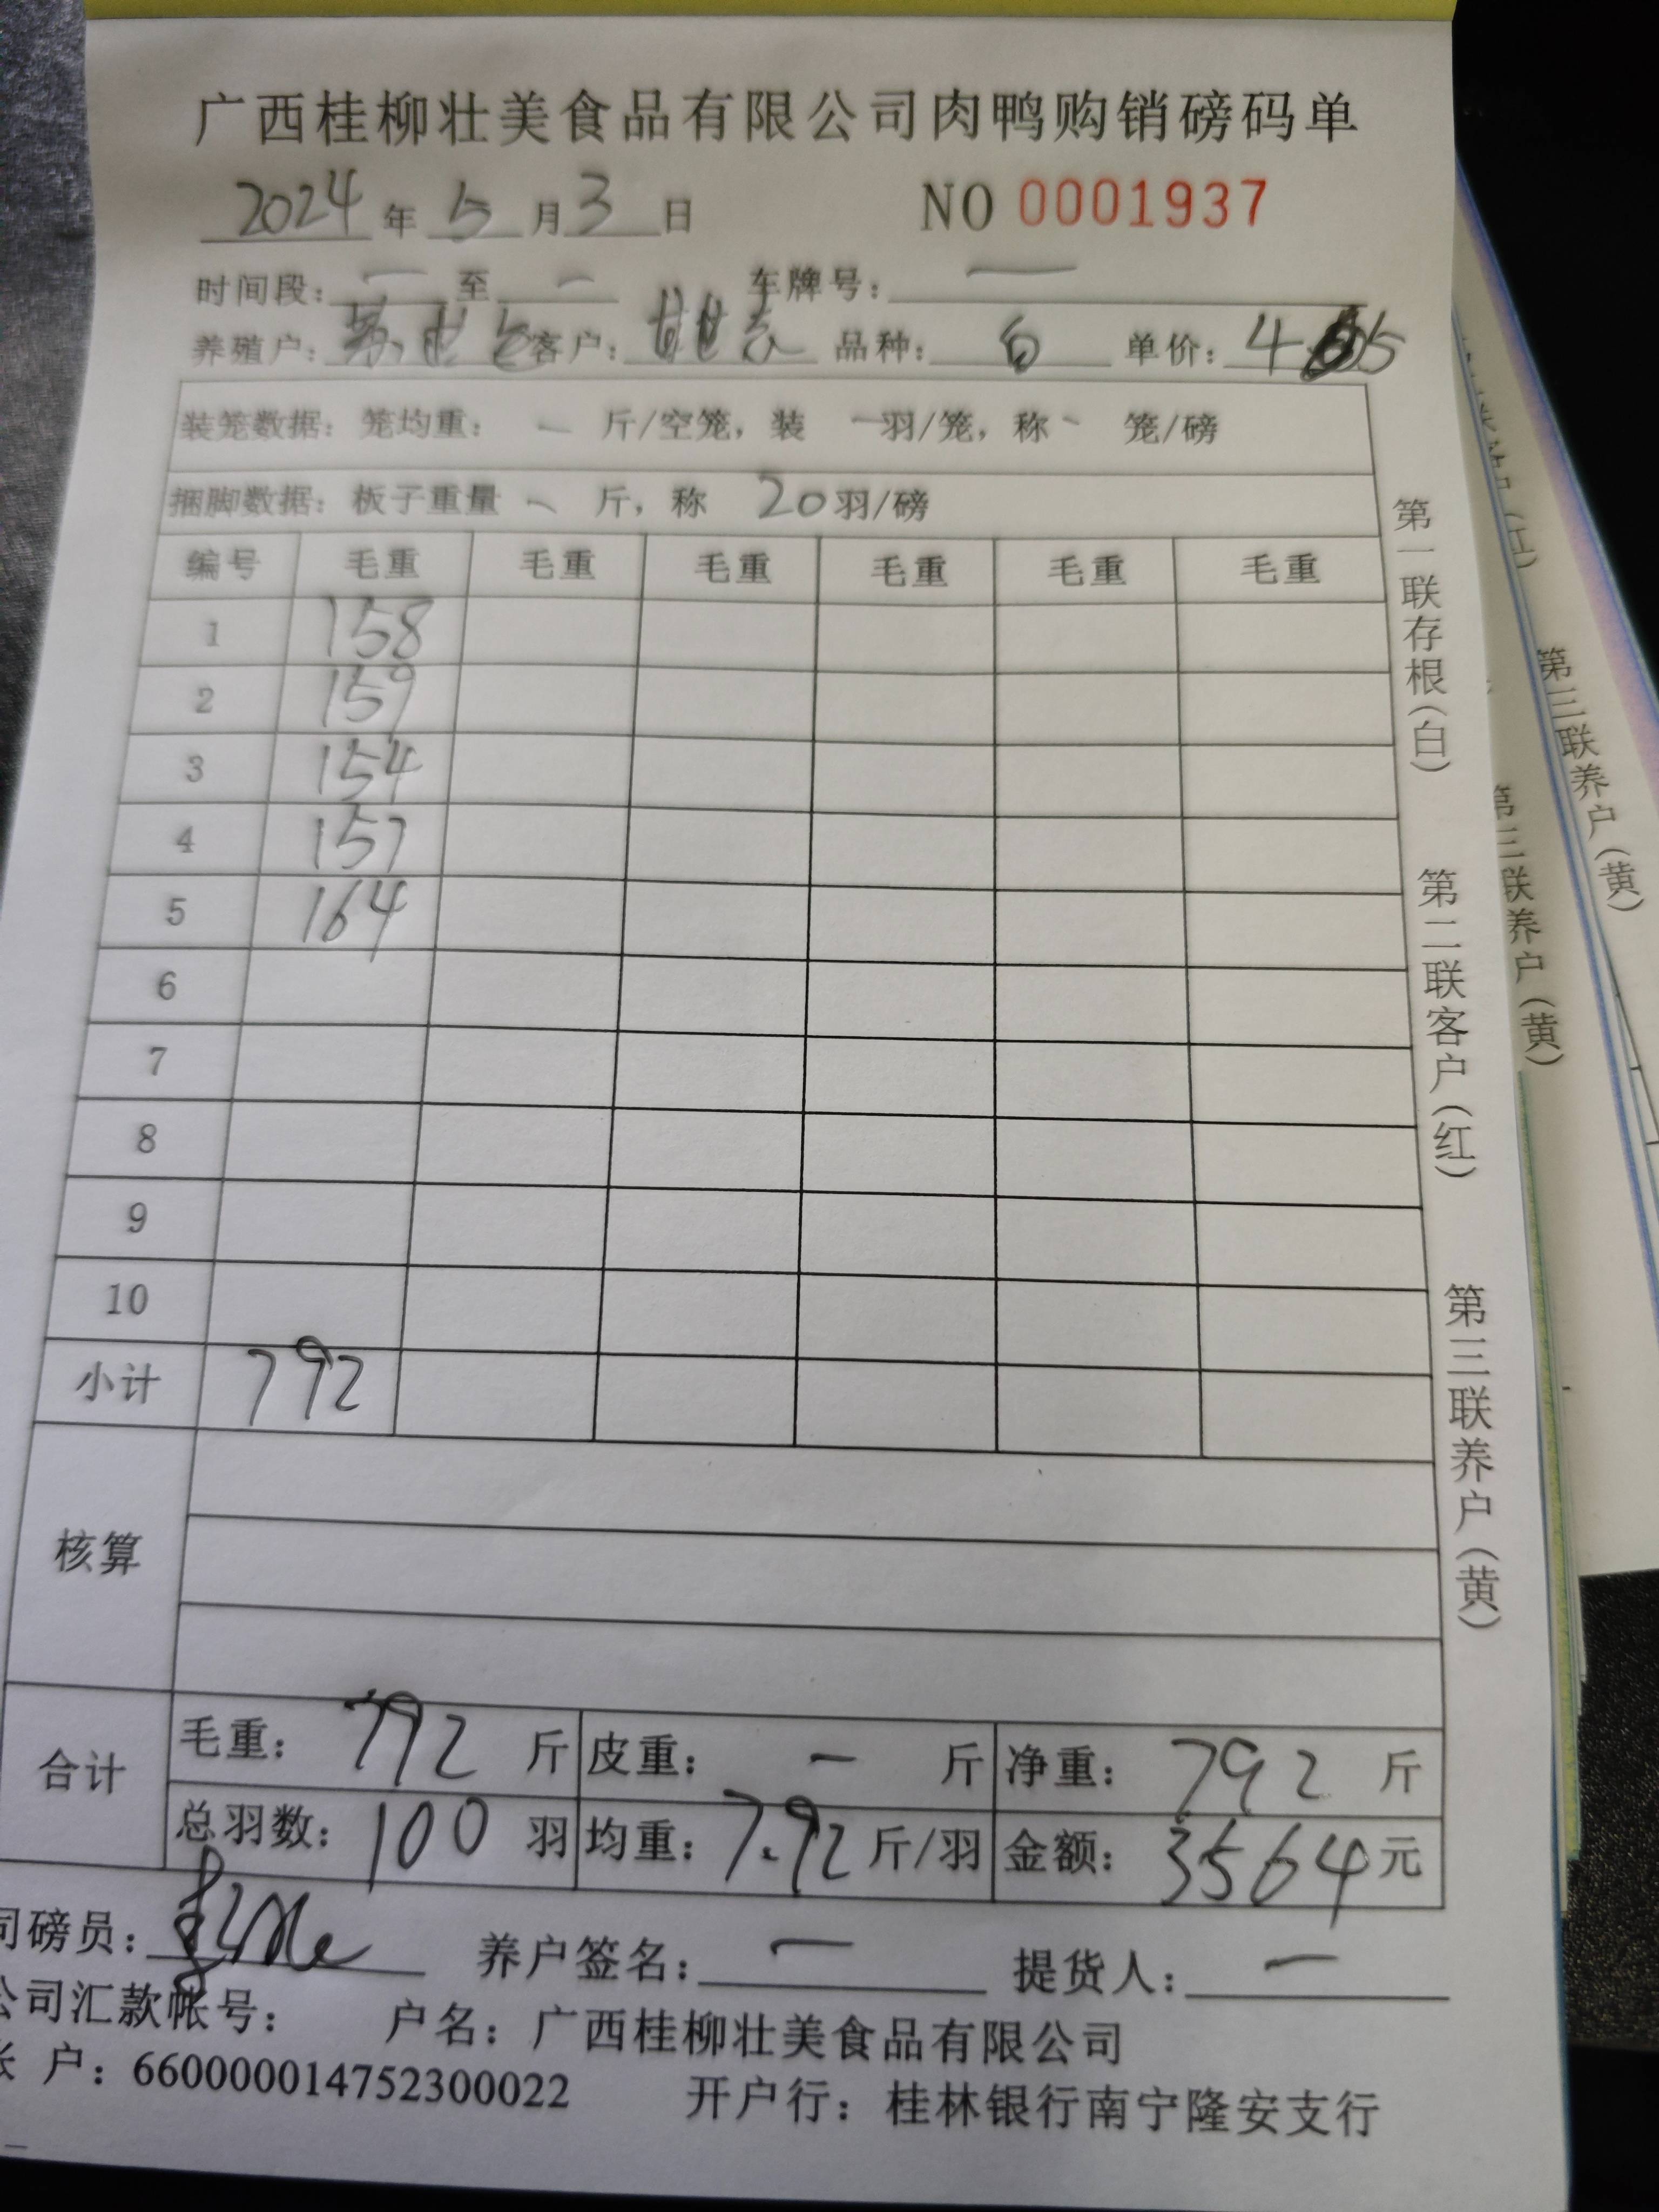 广西桂柳壮美食品有限公司肉鸭购销磅码单
2024年5月3日 NO 0001937
时间段：一至一 车牌号：一
养殖户： 客户： 品种：白 单价：4.5
装笼数据：笼均重：一斤/空笼，装一羽/笼，称一笼/磅
捆脚数据：板子重量一斤，称20羽/磅
编号 毛重 毛重 毛重 毛重 毛重 毛重
1 158
2 159
3 154
4 157
5 164
6
7
8
9
10
小计 792
核算
合计
毛重：792斤 皮重：一斤 净重：792斤
总羽数：100羽 均重：7.92斤/羽 金额：3564元
司磅员： 养户签名：一 提货人：一
公司汇款帐号： 户名：广西桂柳壮美食品有限公司
户：660000014752300022 开户行：桂林银行南宁隆安支行
第一联存根（白）
第二联客户（红）
第三联养户（黄）
第三联养户（黄）
第三联养户（黄）